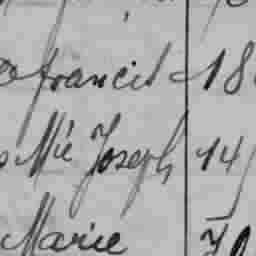 francis 18
Mie Joseph 14
Marie 70